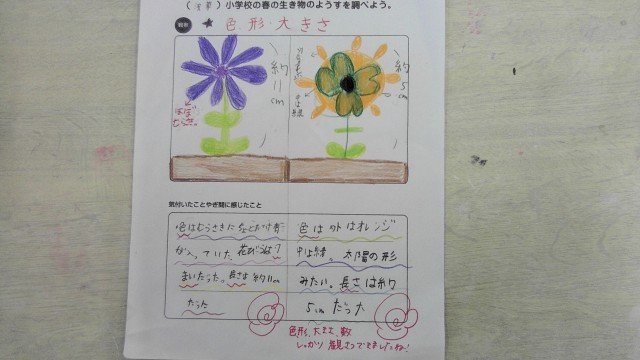 小学校の春の生き物のようすを調べよう。
観察
★ 色・形・大きさ
約11cm
ほぼむらさき
約5cm
気付いたことやぎ問に感じたこと
色はむらさきに
が入っていた。花びらは7
まいだった。長さは約11cm
だった
色は外はオレンジ
中は緑。太陽の形
みたい。長さは約
5cmだった
色、形、大きさ、数
しっかり観さつできましたね!